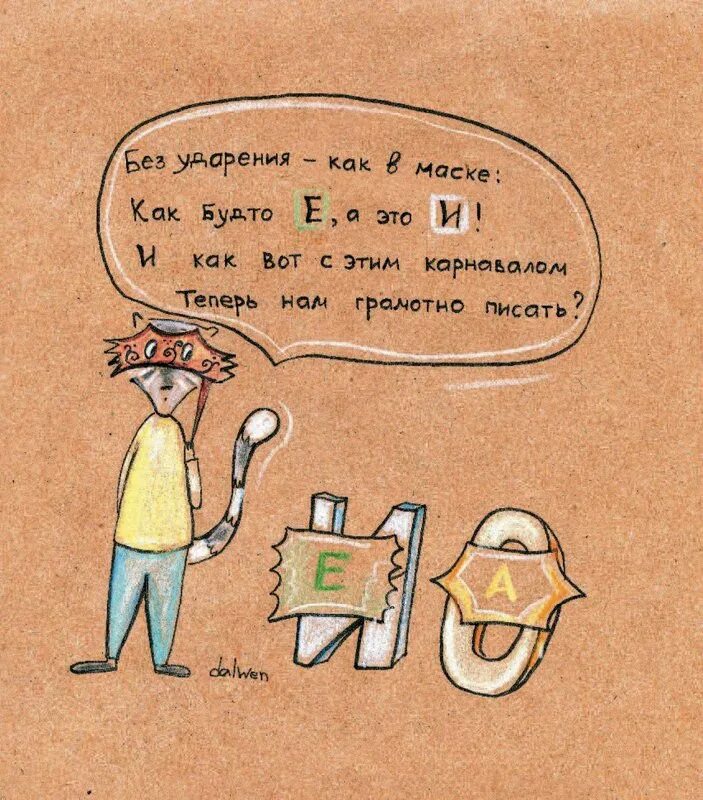 Без ударения – как в маске:
Как будто Е, а это И!
И как вот с этим карнавалом
Теперь нам грамотно писать?
Е
А
dalwen